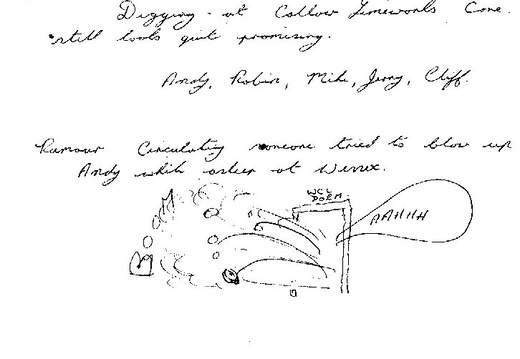 Digging at Callow Limeworks Cave.
still looks quit promising.
Andy, Robin, Mike, Jenny, Cliff.
Rumour Circulating someone tried to blow up
Andy while asleep at
WCC
DOOR
AAHHH
BOOM